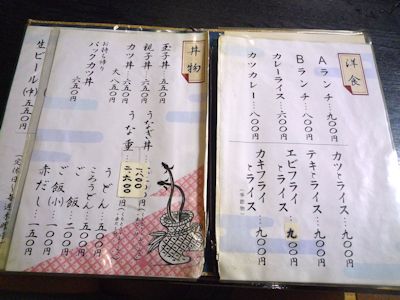 洋食
Aランチ…九〇〇円
Bランチ…八〇〇円
カレーライス…六〇〇円
カツカレー…八〇〇円
カツとライス…九〇〇円
テキとライス…九〇〇円
エビフライとライス…九〇〇円
カキフライとライス…九〇〇円
丼物
玉子丼…五五〇円
親子丼…六五〇円
カツ丼…六五〇円
大 八五〇円
お持ち帰り
パックカツ丼
六五〇円
うなぎ丼
一八〇〇
うな重
二、六〇〇
うどん…五五〇円
ころうどん…五五〇円
ご飯…二〇〇円
ご飯(小)…一五〇円
赤だし…一五〇円
生ビール(中)五五〇円